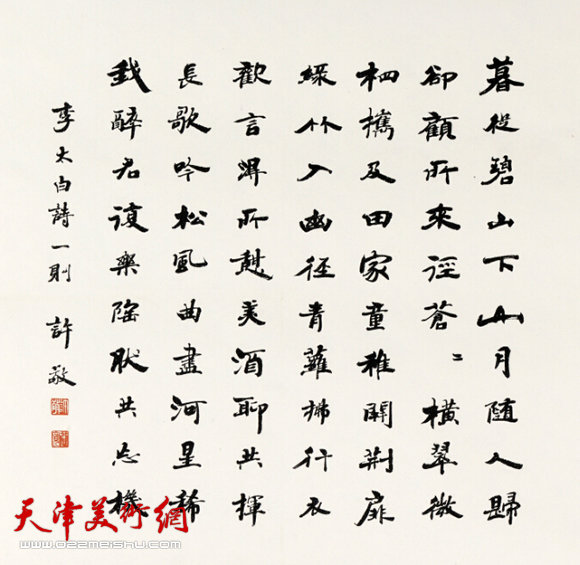 暮從碧山下山月隨人歸
卻顧所來徑蒼〻橫翠微
相攜及田家童稚開荊扉
綠竹入幽徑青蘿拂行衣
歡言得所憩美酒聊共揮
長歌吟松風曲盡河星稀
我醉君復樂陶然共忘機
李太白詩一則 許敬
天津美術網
www.022meishu.com